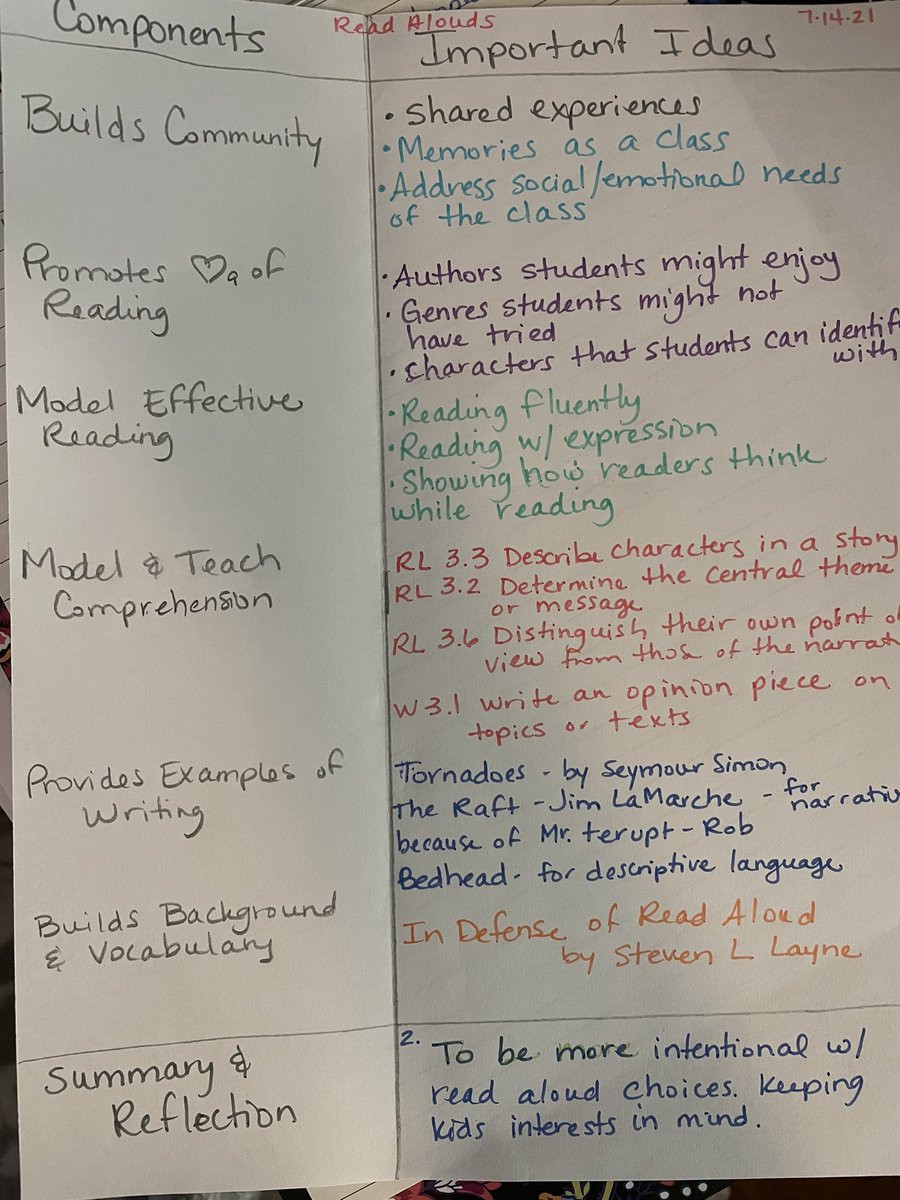 Read Alouds
7.14.21
Components
Important Ideas
Builds Community
• Shared experiences
• Memories as a class
• Address social/emotional needs
of the class
Promotes ♡ of
Reading
• Authors students might enjoy
• Genres students might not
have tried
• Characters that students can identif
with
Model Effective
Reading
• Reading fluently
• Reading w/ expression
• Showing how readers think
while reading
Model & Teach
Comprehension
RL 3.3 Describe characters in a story
RL 3.2 Determine the central theme
or message
RL 3.6 Distinguish their own point o
view from those of the narrat
W 3.1 write an opinion piece on
topics or texts
Provides Examples of
Writing
Tornadoes - by Seymour Simon
The Raft - Jim LaMarche - for
narrativ
because of Mr. terupt - Rob
Bedhead - for descriptive language
Builds Background
& Vocabulary
In Defense of Read Aloud
by Steven L Layne
Summary &
Reflection
2. To be more intentional w/
read aloud choices. Keeping
kids interests in mind.